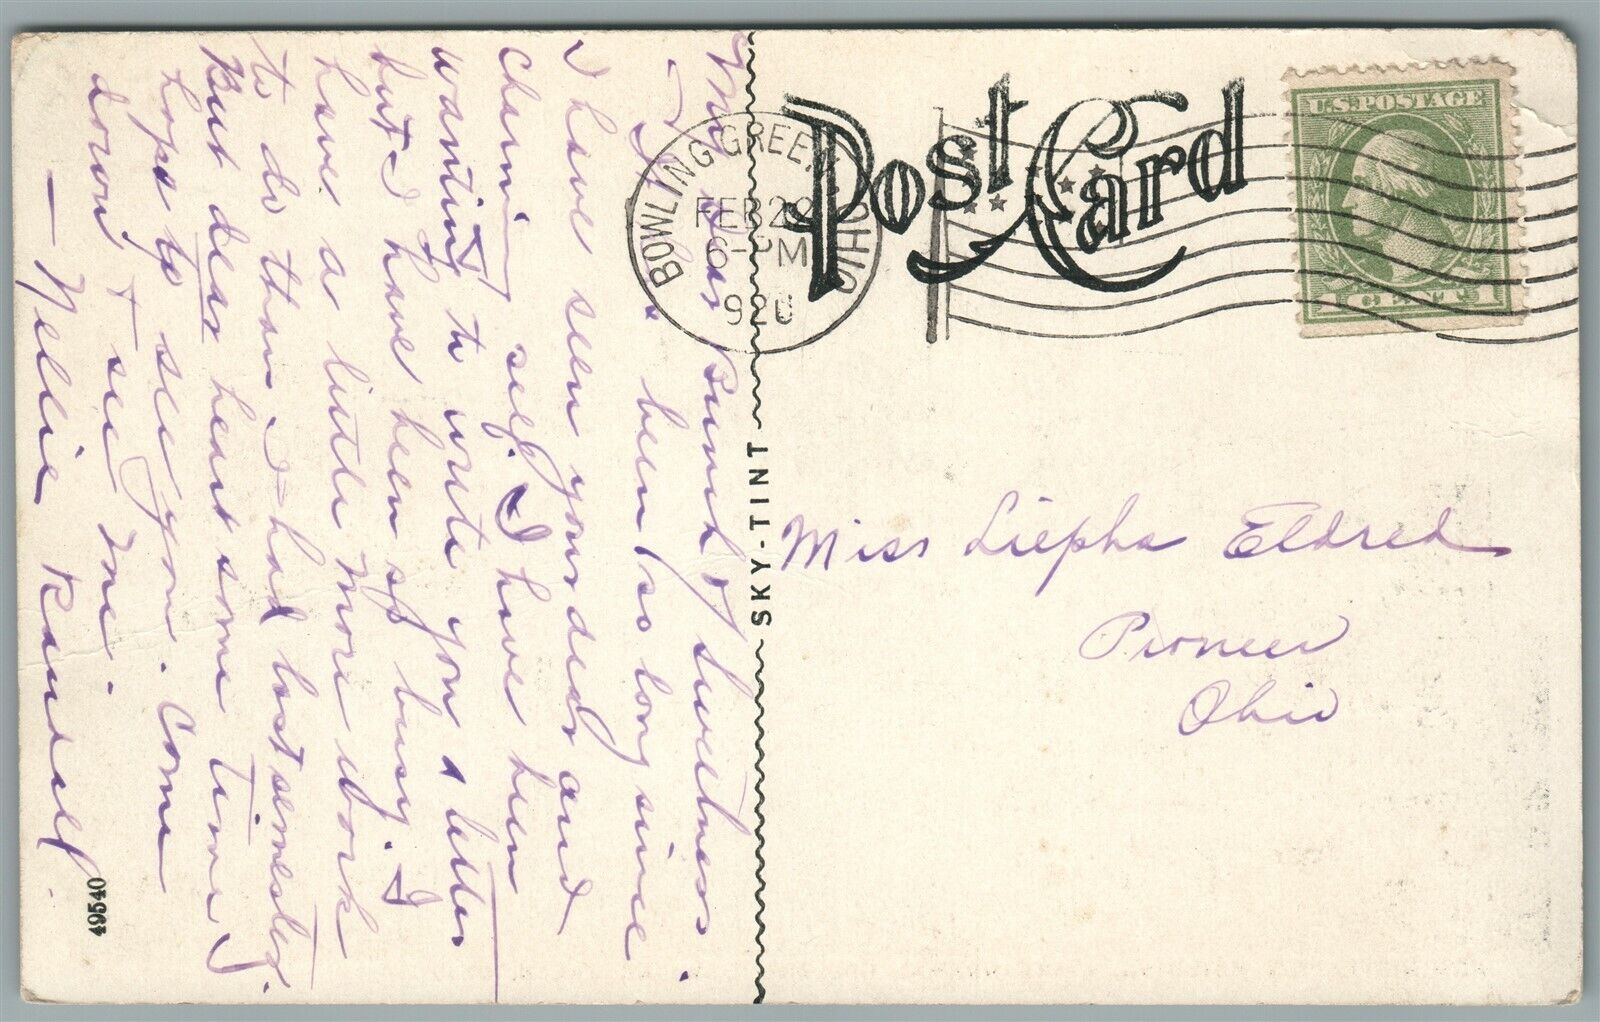 My Dear Bunch of Sweetness
It has been so long since
I have seen your dear and
charming self. I have been
wanting to write you a letter
but I have been so busy. I
have a little more work
to do than I had last semester.
But dear heart some time I
hope to see you. Come
down & see me.
— Nellie
49540
Post Card
BOWLING GREEN OHIO
FEB 2
6-PM
1920
U.S. POSTAGE
1 CENT 1
SKY-TINT
Miss Liepha Eldred
Pioneer
Ohio